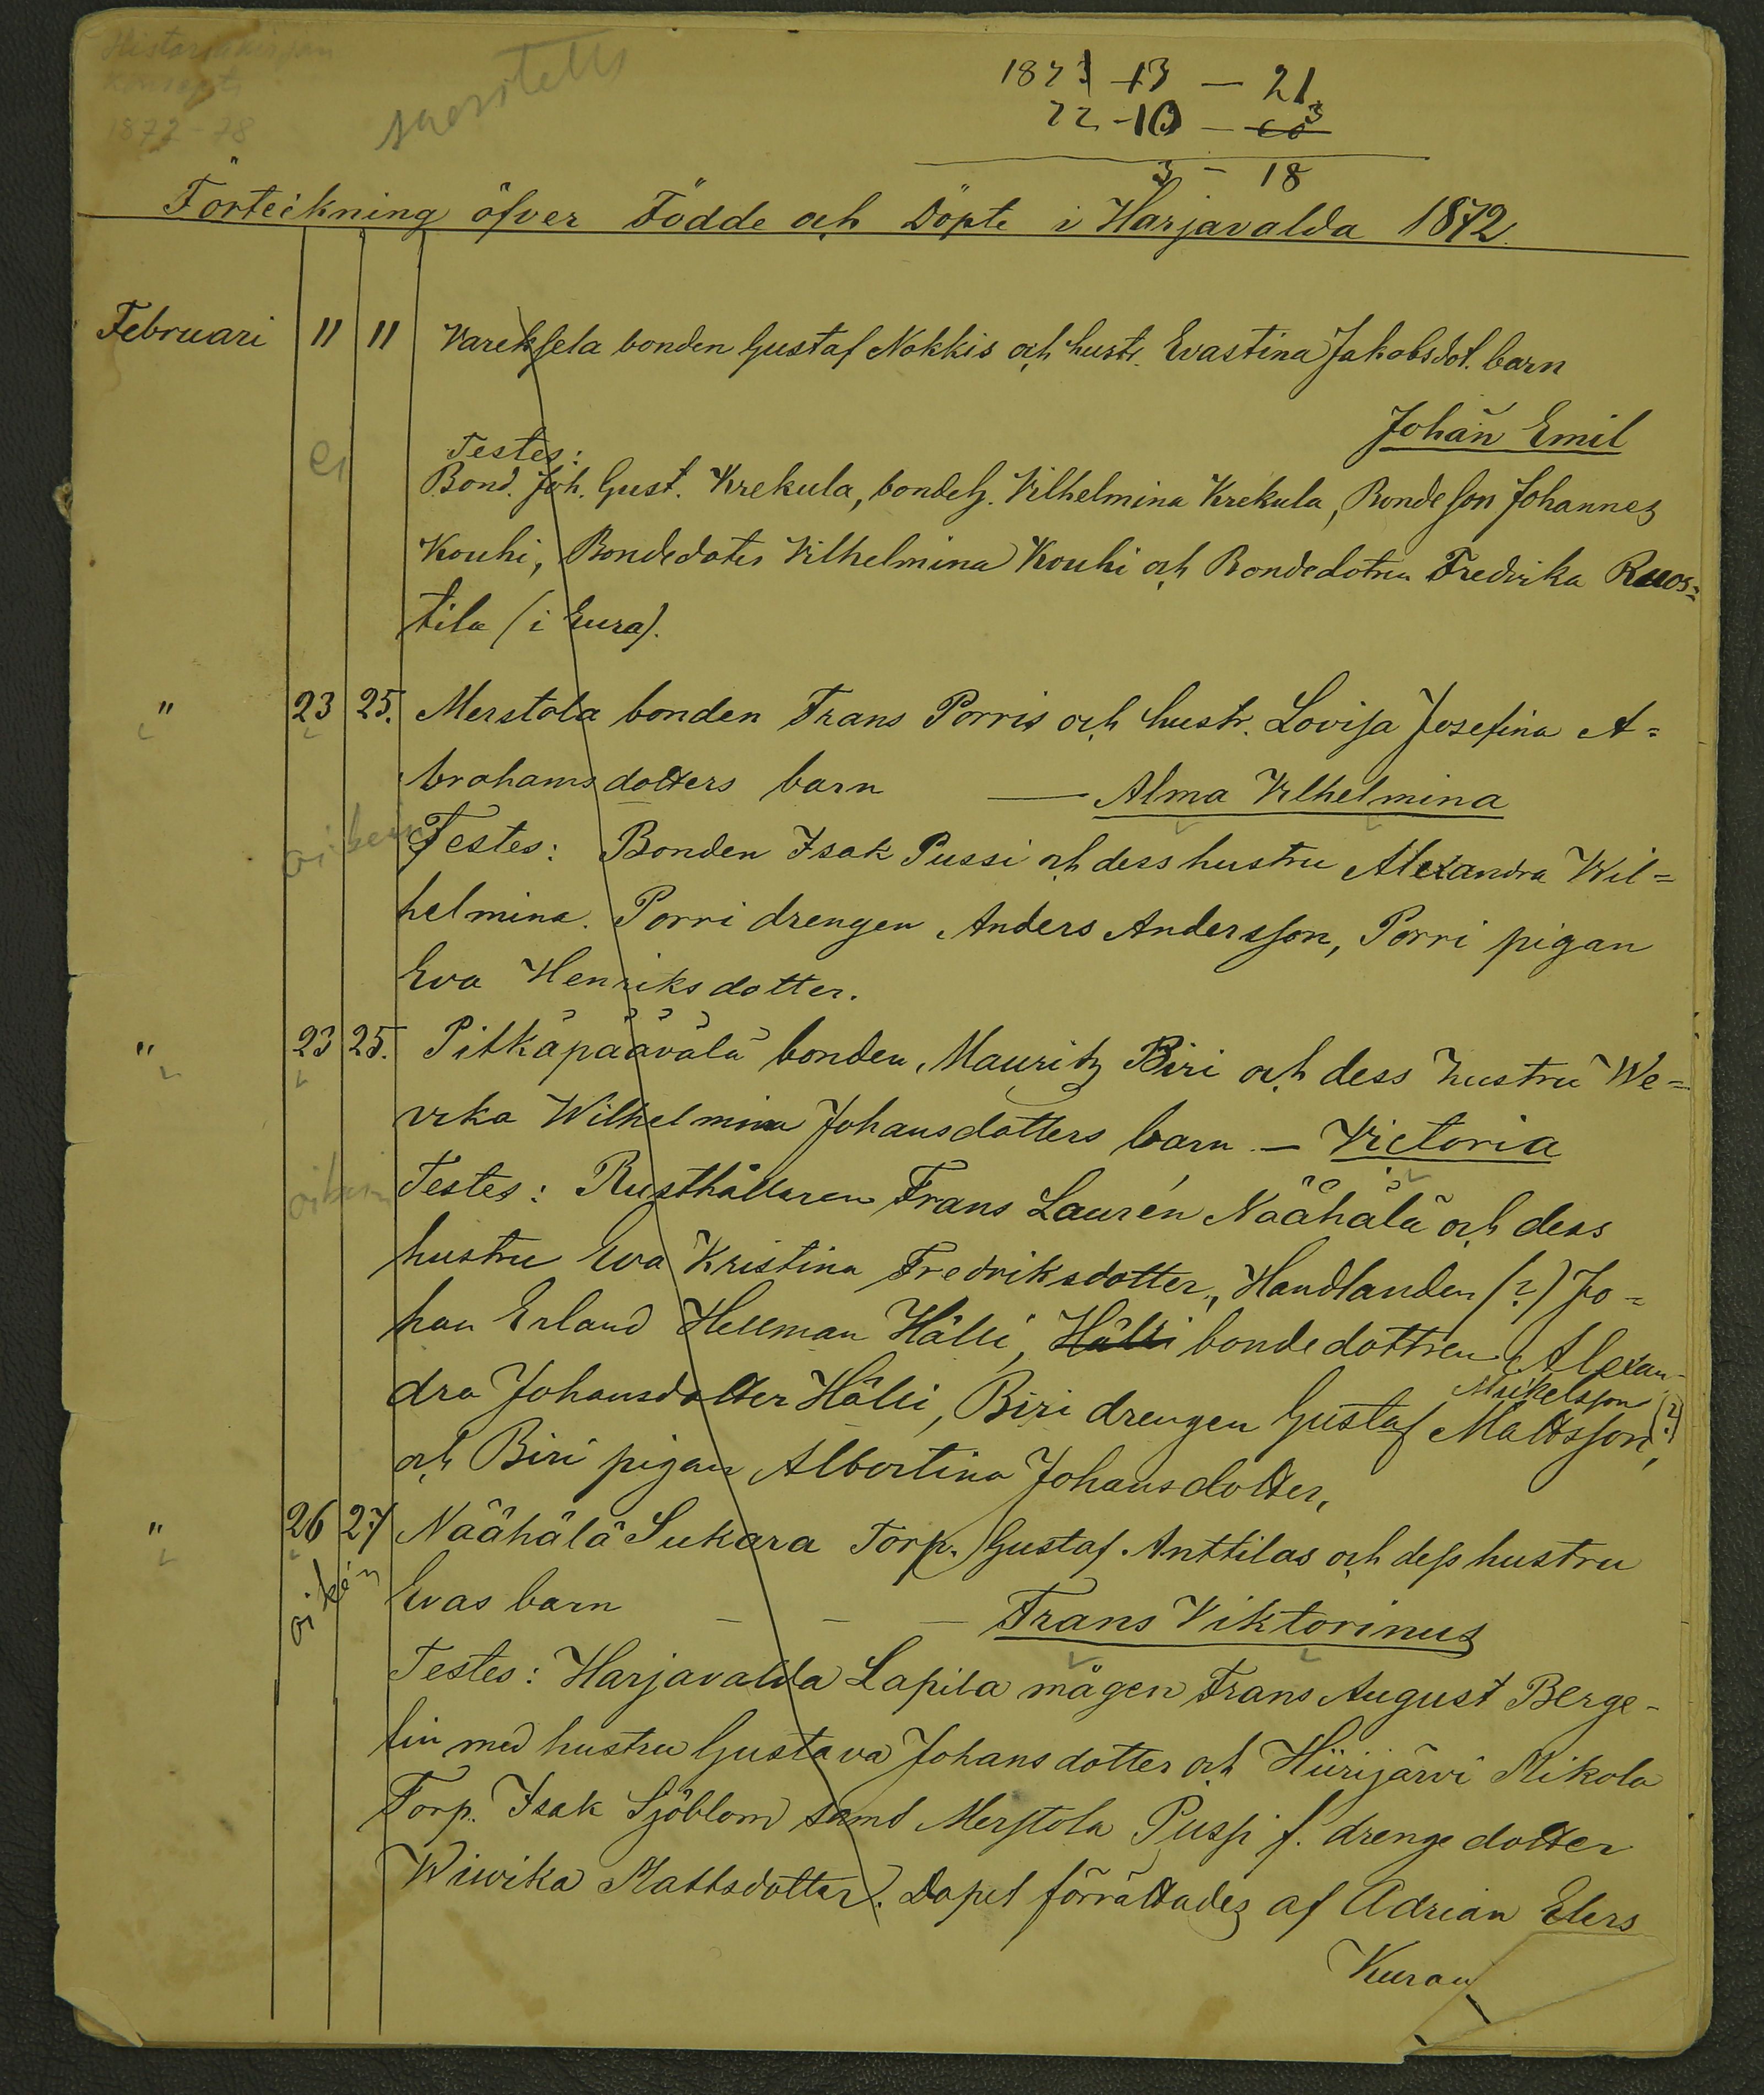 Historiakirjan
konsepti
1872-78
1873 13 — 21
72 - 10 — 3
3 - 18
Förteckning öfver Födde och Döpte i Harjavalda 1872.
Februari 11 11 Vareksela bonden Gustaf Nokkis och hustr. Evastina Jakobsdot. barn
Johan Emil
ei Testes:
Bond. Joh. Gust. Krekula, bondeh. Vilhelmina Krekula, Bondeson Johannes
Kouhi, Bondedoter Vilhelmina Kouhi och Bondedotren Fredrika Ruos=
tila (i Eura).
" 23 25. Merstola bonden Frans Porris och hustr. Lovisa Josefina A=
brahamsdotters barn — Alma Vilhelmina
oikein Testes: Bonden Isak Pussi och dess hustru Alexandra Wil=
helmina. Porri drengen Anders Andersson, Porri pigan
Eva Henriksdotter.
" 23 25. Pitkäpäävälä bonden Mauritz Biri och dess hustru We=
vika Wilhelmina Johansdotters barn — Victoria
oikein Testes: Rusthållaren Frans Laurén Näähälä och dess
hustru Eva Kristina Fredriksdotter, Handlanden (?) Jo=
han Erland Hellman Hälli, Hälli bondedottren Alexan-
dra Johansdotter Hälli, Biri drengen Gustaf Mattsson, Mikelsson (?)
och Biri pigan Albertina Johansdotter,
" 26 27 Näähälä Sukara Torp. Gustaf Anttilas och dess hustru
oikein Evas barn — — — Frans Viktorinus
Testes: Harjavalda Lapila mågen Frans August Berge-
lin med hustru Gustava Johansdotter och Hiirijärvi Mikola
Torp. Isak Sjöblom samt Merstola Pussi f. drengedotter
Wiwika Mattsdotter. Dopet förrättades af Adrian Elers